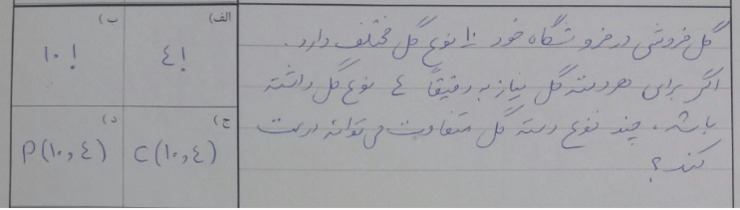 گل فروشی در فروشگاه خود ۱۰ نوع گل مختلف دارد.
اگر برای هر دسته گل نیاز به دقیقاً ٤ نوع گل داشته
باشد، چند نوع دسته گل متفاوت می تواند درست
کند؟
الف)
٤!
ب)
۱۰!
ج)
C(۱۰,٤)
د)
P(۱۰,٤)